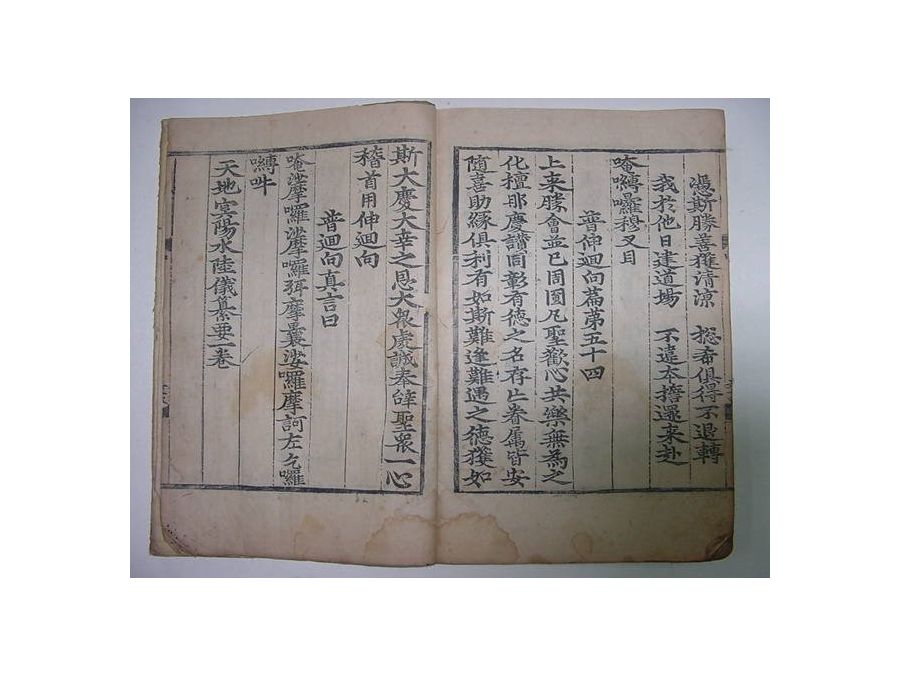 憑斯勝善獲清涼 捴希俱得不退轉
我於他日建道場 不違本擔還来赴
唵嚩囉穆叉目
普伸迴向篇苐五十四
上来勝會並已周圓凡聖歡心共樂無為之
化檀那慶讃同彰有德之名存亡眷属皆安
随喜助緣俱利有如斯難逢難遇之德獲如
斯大慶大幸之恩大衆虔誠奉辝聖衆一心
稽首用伸迴向
普迴向真言曰
唵娑摩囉娑摩囉弭摩曩娑囉摩訶左乞囉
嚩吽
天地冥陽水陸儀纂要一卷